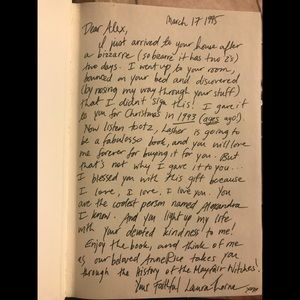 March 17 1995
Dear Alex,
I just arrived to your house after
a bizzarre (so bizarre it has two z's)
two days. I went up to your room,
bounced on your bed and discovered
(by nosing my way through your stuff)
that I didn't sign this! I gave it
to you for Christmas in 1993 (ages ago!).
Now listen tootz, Lasher is going to
be a fabulosso book, and you will love
me forever for buying it for you. But
that's not why I gave it to you...
I blessed you with this gift because
I love, I love, I love you. You
are the coolest person named Alexandra
I know. And you light up my life
with your devoted kindness to me!
Enjoy the book, and think of me
as our beloved Anne Rice takes you
through the history of the Mayfair Witches!
Yours Faithful Laura Lorna